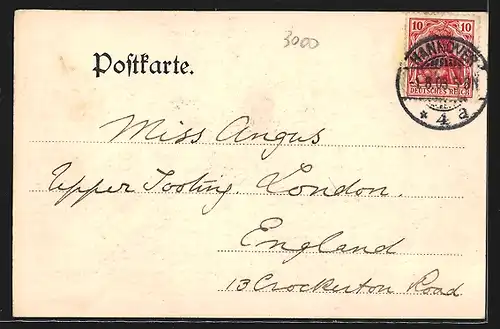 3000
10 10
DEUTSCHES REICH
HANNOVER
* 4 a
Postkarte.
Miss Angus
Upper Tooting. London.
England
13 Crockerton Road